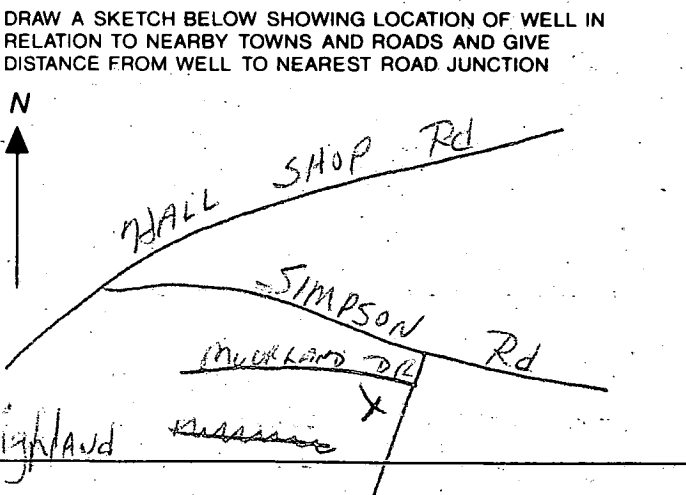 DRAW A SKETCH BELOW SHOWING LOCATION OF WELL IN
RELATION TO NEARBY TOWNS AND ROADS AND GIVE
DISTANCE FROM WELL TO NEAREST ROAD JUNCTION
N
HALL SHOP Rd
SIMPSON Rd
MUURLAND DR
X
ighland